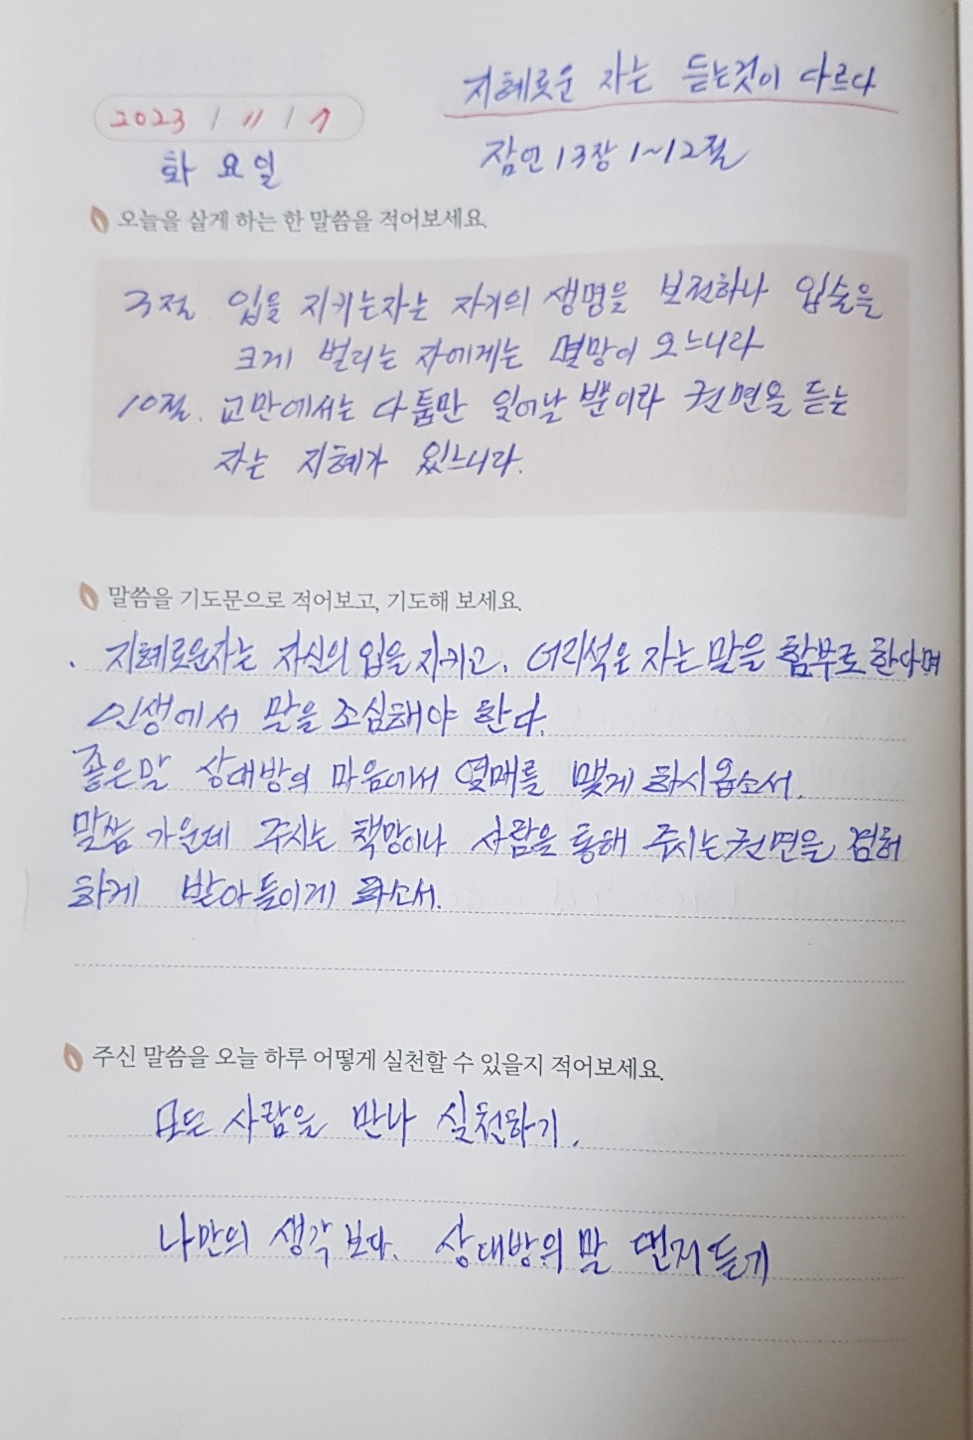 지혜로운 자는 듣는것이 다르다
2023 / 11 / 7
화요일
잠언 13장 1~12절
오늘을 살게 하는 한 말씀을 적어보세요.
3절. 입을 지키는자는 자기의 생명을 보전하나 입술을
크게 벌리는 자에게는 멸망이 오느니라
10절. 교만에서는 다툼만 일어날 뿐이라 권면을 듣는
자는 지혜가 있느니라.
말씀을 기도문으로 적어보고, 기도해 보세요.
. 지혜로운자는 자신의 입을 지키고, 어리석은 자는 말을 함부로 한다며
인생에서 말을 조심해야 한다.
좋은말 상대방의 마음에서 열매를 맺게 하시옵소서.
말씀 가운데 주시는 책망이나 사람을 통해 주시는 권면을 겸허
하게 받아들이게 하소서.
주신 말씀을 오늘 하루 어떻게 실천할 수 있을지 적어보세요.
모든 사람을 만나 실천하기.
나만의 생각보다. 상대방의 말 먼저 듣기